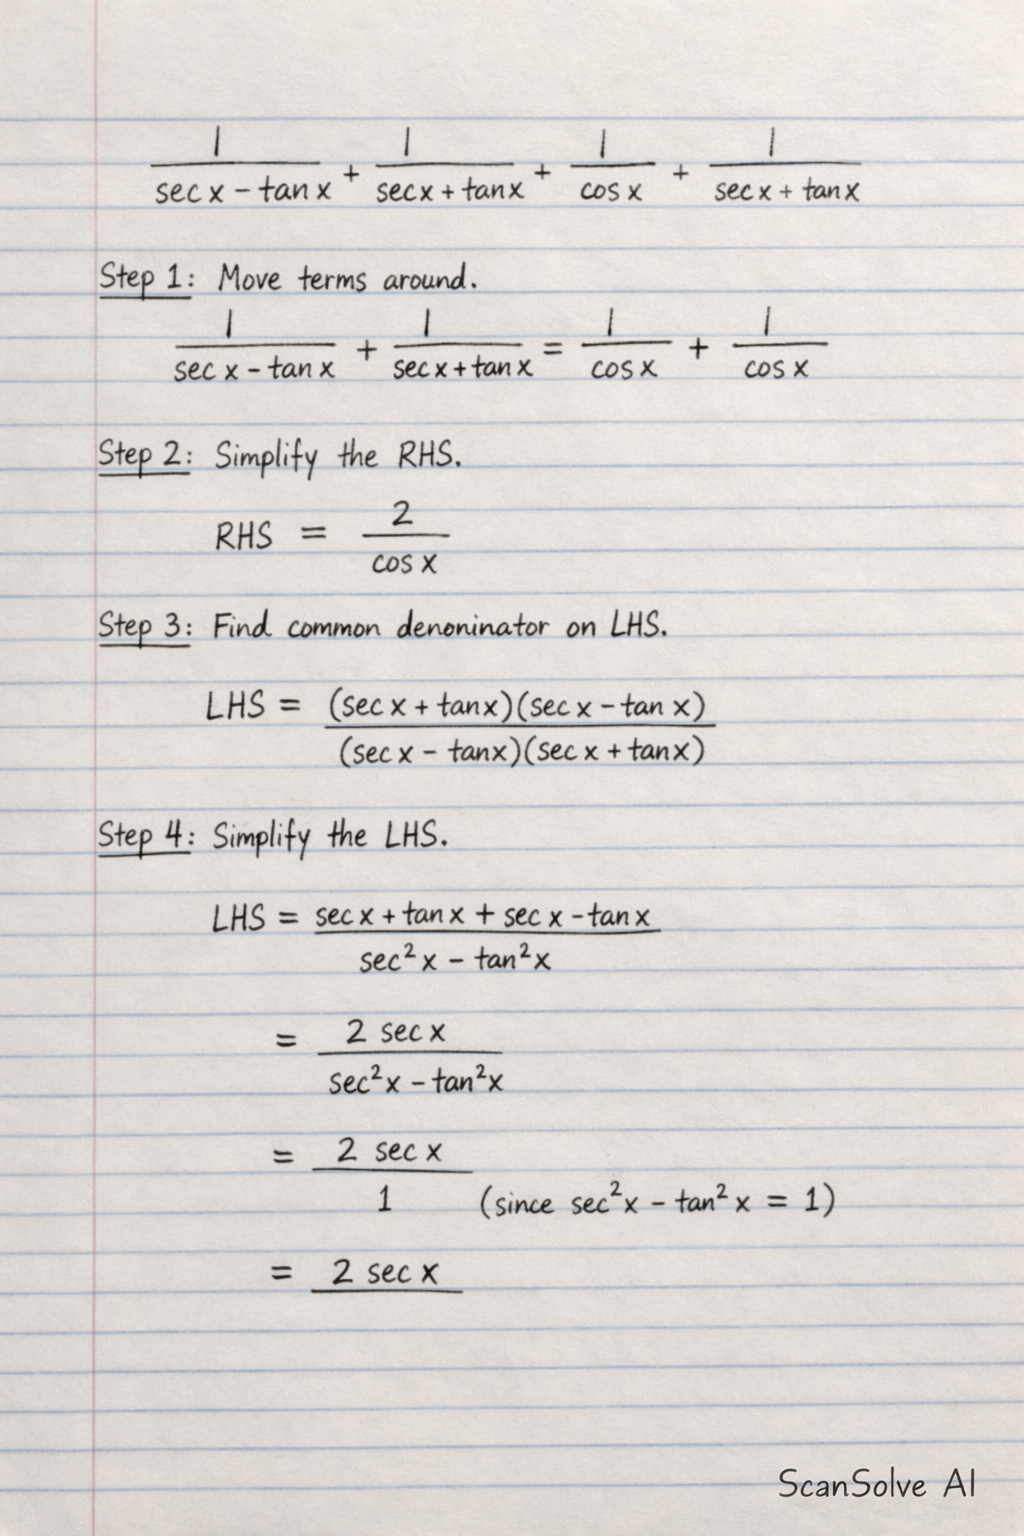 1/(sec x − tan x) + 1/(sec x + tan x) + 1/(cos x) + 1/(sec x + tan x)
Step 1: Move terms around.
1/(sec x − tan x) + 1/(sec x + tan x) = 1/(cos x) + 1/(cos x)
Step 2: Simplify the RHS.
RHS = 2/(cos x)
Step 3: Find common denoninator on LHS.
LHS = (sec x + tan x)(sec x − tan x)/(sec x − tan x)(sec x + tan x)
Step 4: Simplify the LHS.
LHS = (sec x + tan x + sec x − tan x)/(sec²x − tan²x)
= 2 sec x/(sec²x − tan²x)
= 2 sec x/1 (since sec²x − tan²x = 1)
= 2 sec x
ScanSolve AI